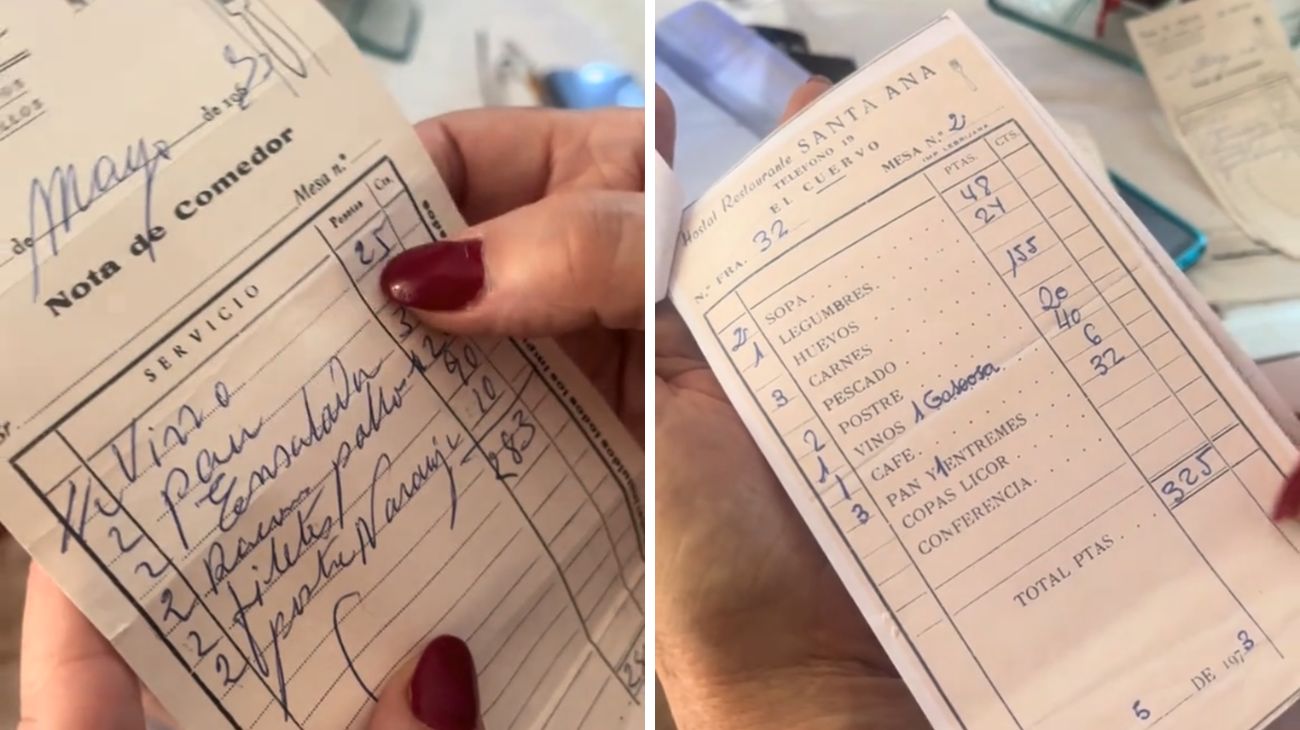 de Mayo de 19673
Nota de Comedor
Mesa n.º
Pesetas Cts
SERVICIO
Vino 25
2 pan
2 Ensalada
2
2 filetes pollo
2 postre Naranja
283
Hostal Restaurante SANTA ANA
TELEFONO 19
EL CUERVO
N.º FRA. 32 MESA N.º 2
IMP. LEBRIJANA
PTAS. CTS.
2 SOPA 48
1 LEGUMBRES 24
HUEVOS
3 CARNES 155
PESCADO
2 POSTRE 20
1 VINOS 1 Gaseosa 40
1 CAFE 6
3 PAN Y ENTREMES 32
COPAS LICOR
CONFERENCIA
325
TOTAL PTAS
5 DE 1973